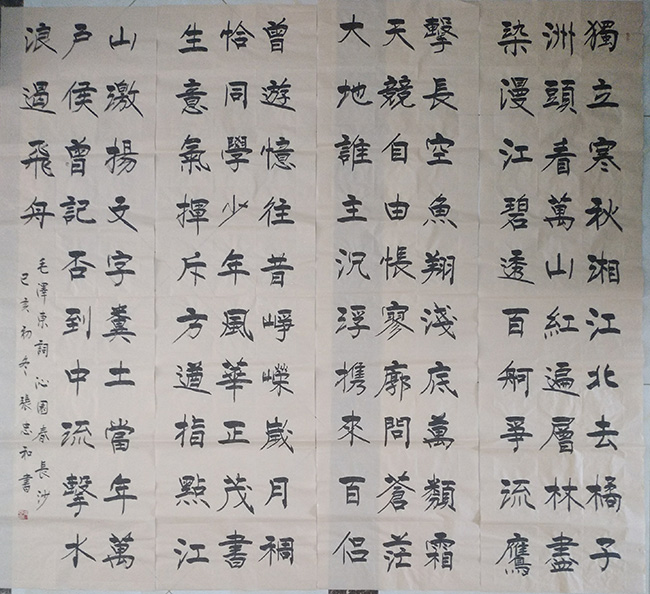 獨立寒秋湘江北去橘子
洲頭看萬山紅遍層林盡
染漫江碧透百舸爭流鷹
擊長空魚翔淺底萬類霜
天競自由悵寥廓問蒼茫
大地誰主沉浮携來百侶
曾遊憶往昔崢嶸歲月稠
恰同學少年風華正茂書
生意氣揮斥方遒指點江
山激揚文字糞土當年萬
戶侯曾記否到中流擊水
浪遏飛舟
毛澤東詞沁園春長沙
己亥初冬張忠和書